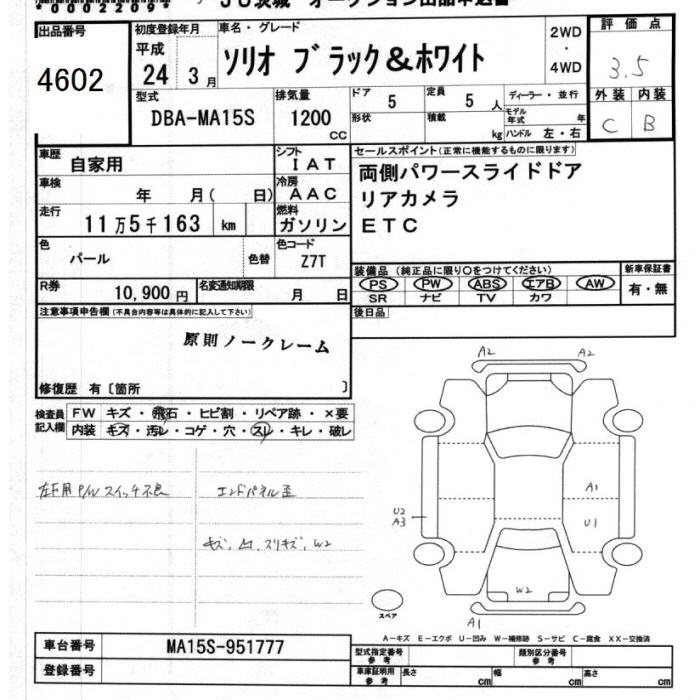 *0002209*
JU茨城 オークション出品申込書
出品番号
4602
初度登録年月
平成
24 3月
車名・グレード
ソリオ ブラック&ホワイト
2WD
・
4WD
評価点
3.5
外装 内装
C B
型式
DBA-MA15S
排気量
1200
cc
ドア 5
形状
定員 5 人
積載 kg
ディーラー・並行
モデル年式 年
ハンドル 左・右
車歴 自家用
車検 年 月( 日)
走行 11万5千163 km
シフト IAT
冷房 AAC
燃料 ガソリン
色 パール 色替
色コード Z7T
R券 10,900 円
名変通知期限 月 日
セールスポイント(正常に機能するものに限ります)
両側パワースライドドア
リアカメラ
ETC
装備品(純正品に限り○をつけてください)
PS PW ABS エアB AW
SR ナビ TV カワ
新車保証書
有・無
後日品
注意事項申告欄(不具合内容等は具体的に記入して下さい)
原則ノークレーム
修復歴 有〔箇所 〕
検査員記入欄
FW キズ・飛石・ヒビ割・リペア跡・×要
内装 キズ・汚レ・コゲ・穴・スレ・キレ・破レ
左F用 P/W スイッチ不良
エンドパネル歪
キズ、凹、スリキズ、W2
A2 A2
A1
U2
A3
U1
W2
A1
スペア
A-キズ E-エクボ U-凹み W-補修跡 S-サビ C-腐食 XX-交換済
車台番号 MA15S-951777
登録番号
型式指定番号
参考
類別区分番号
参考
車庫証明用
参考
長さ cm 幅 cm 高さ cm